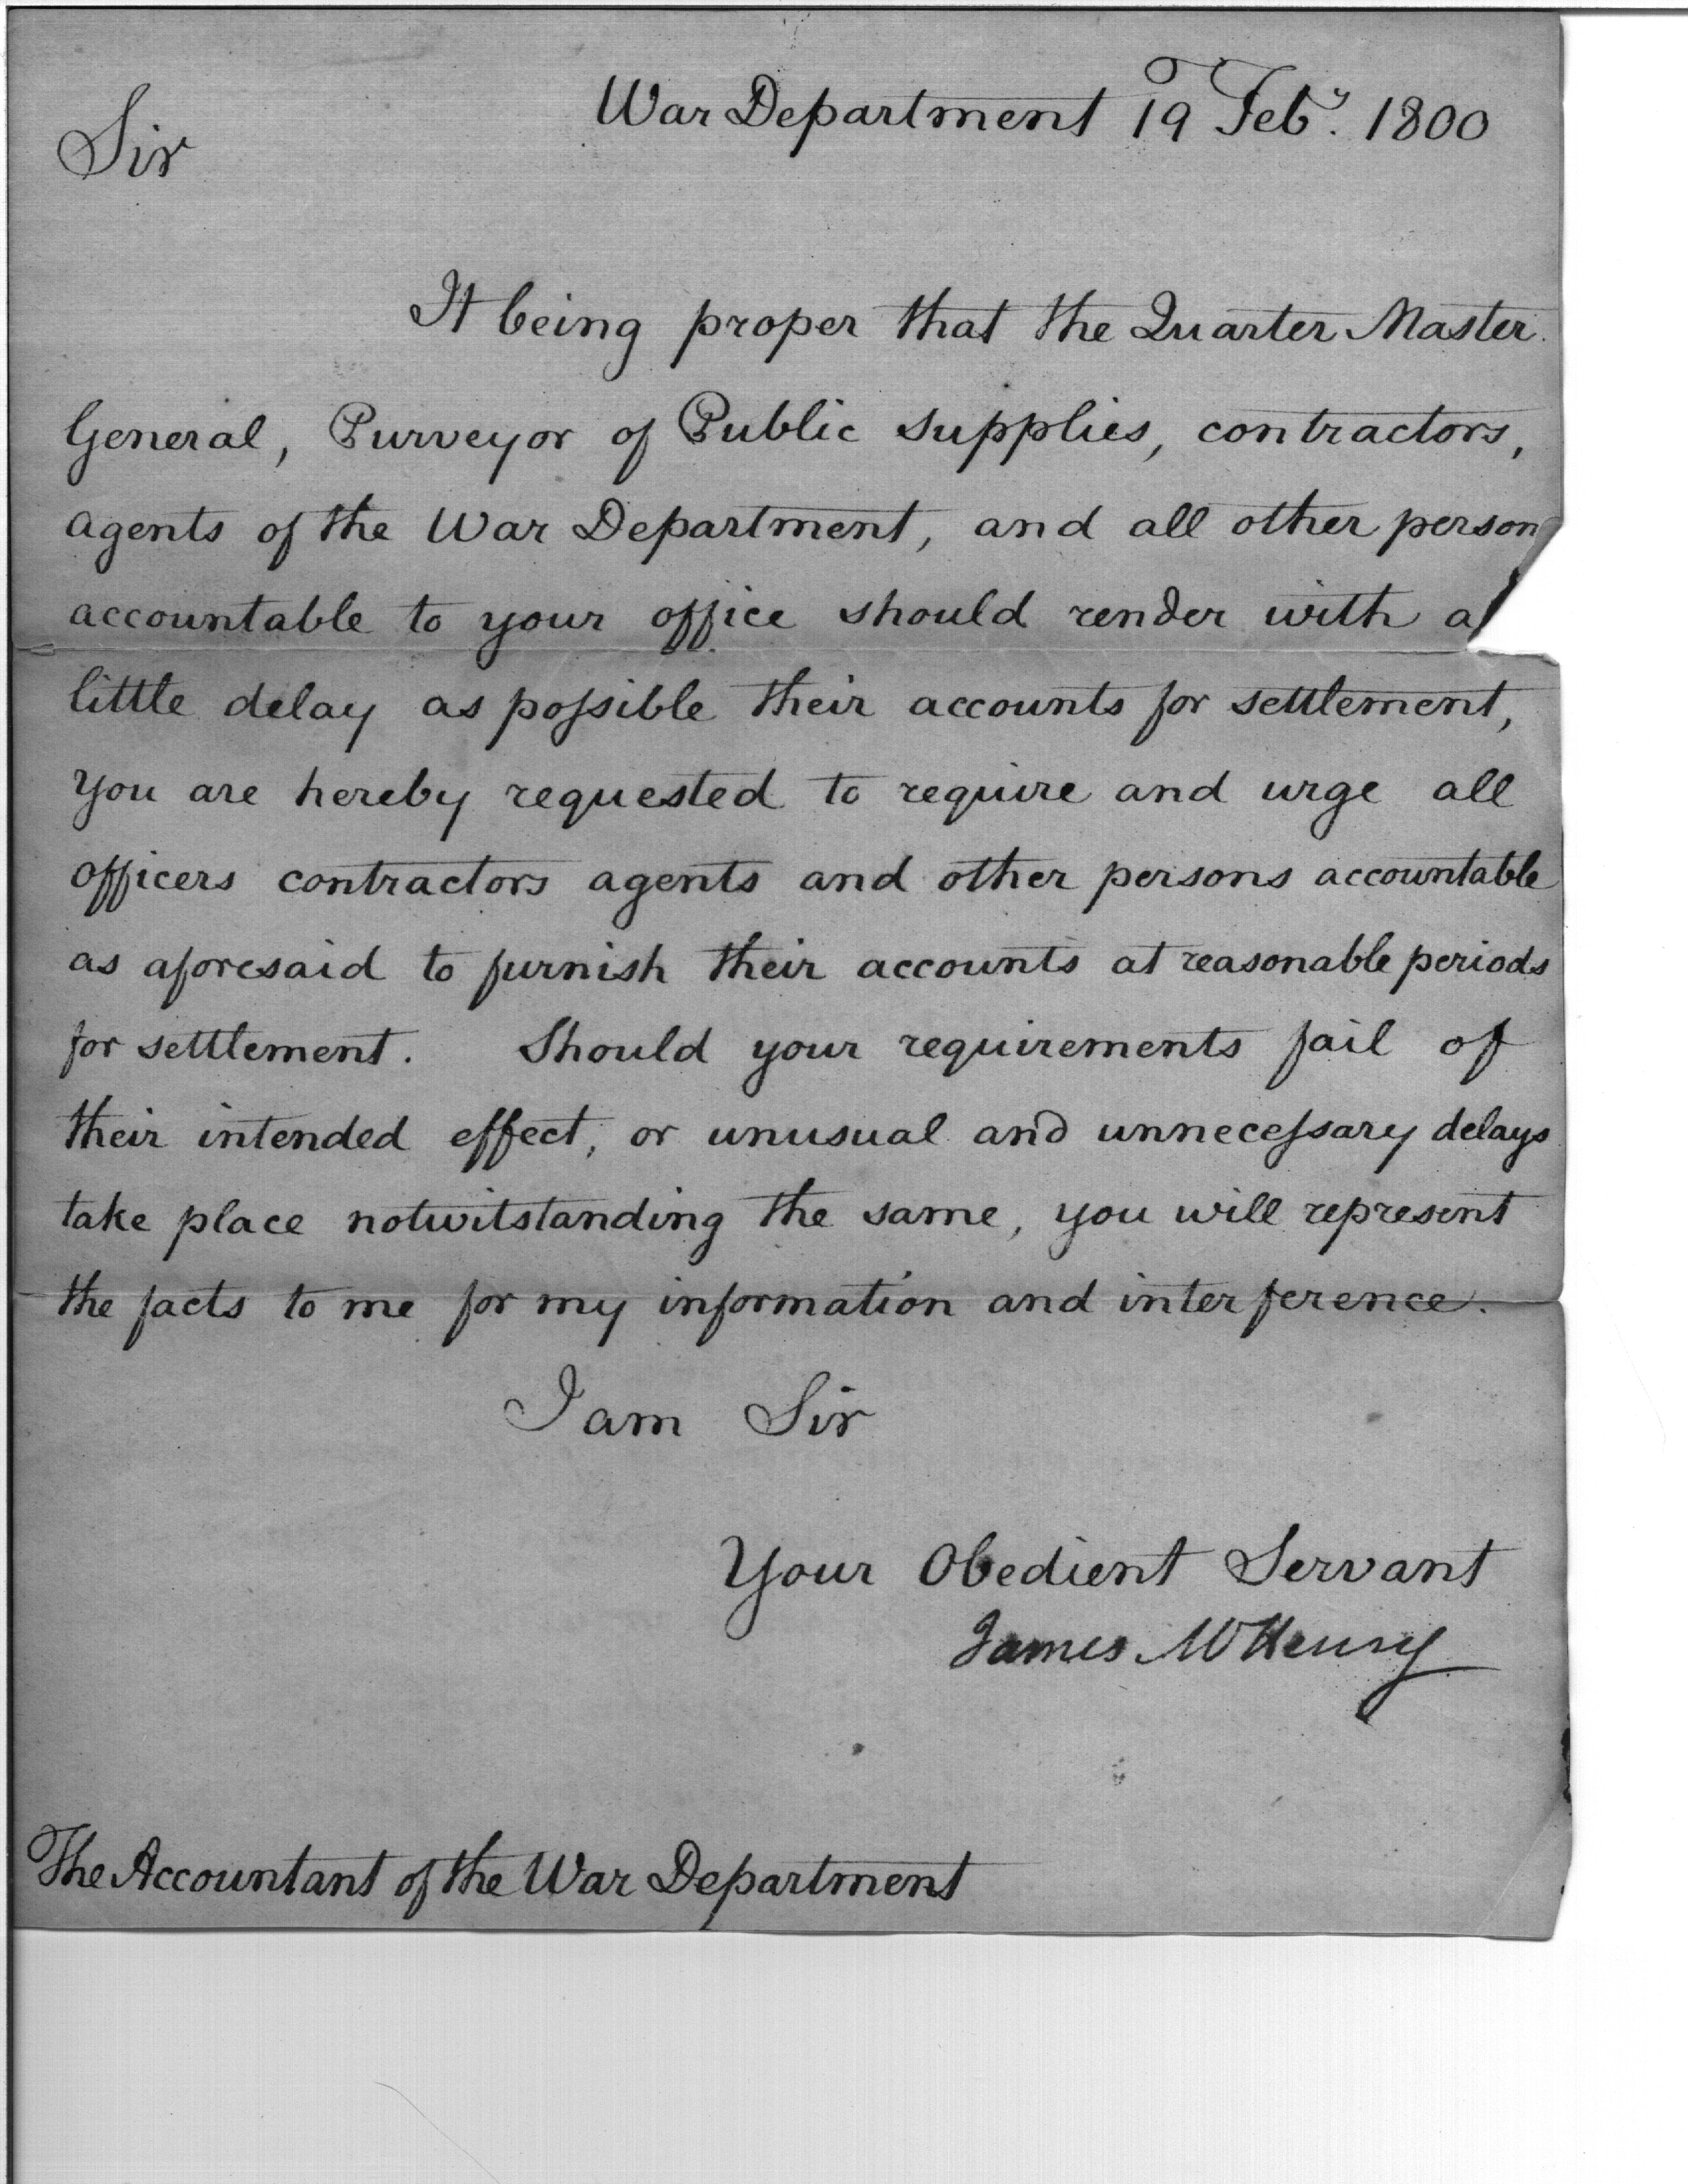 War Department 19 Feby. 1800
Sir
It being proper that the Quarter Master
General, Purveyor of Public supplies, contractors,
agents of the War Department, and all other person
accountable to your office should render with a
little delay as poſsible their accounts for settlement,
you are hereby requested to require and urge all
officers contractors agents and other persons accountable
as aforesaid to furnish their accounts at reasonable periods
for settlement. Should your requirements fail of
their intended effect, or unusual and unneceſsary delays
take place notwitstanding the same, you will represent
the facts to me for my information and interference.
I am Sir
Your Obedient Servant
James McHenry
The Accountant of the War Department